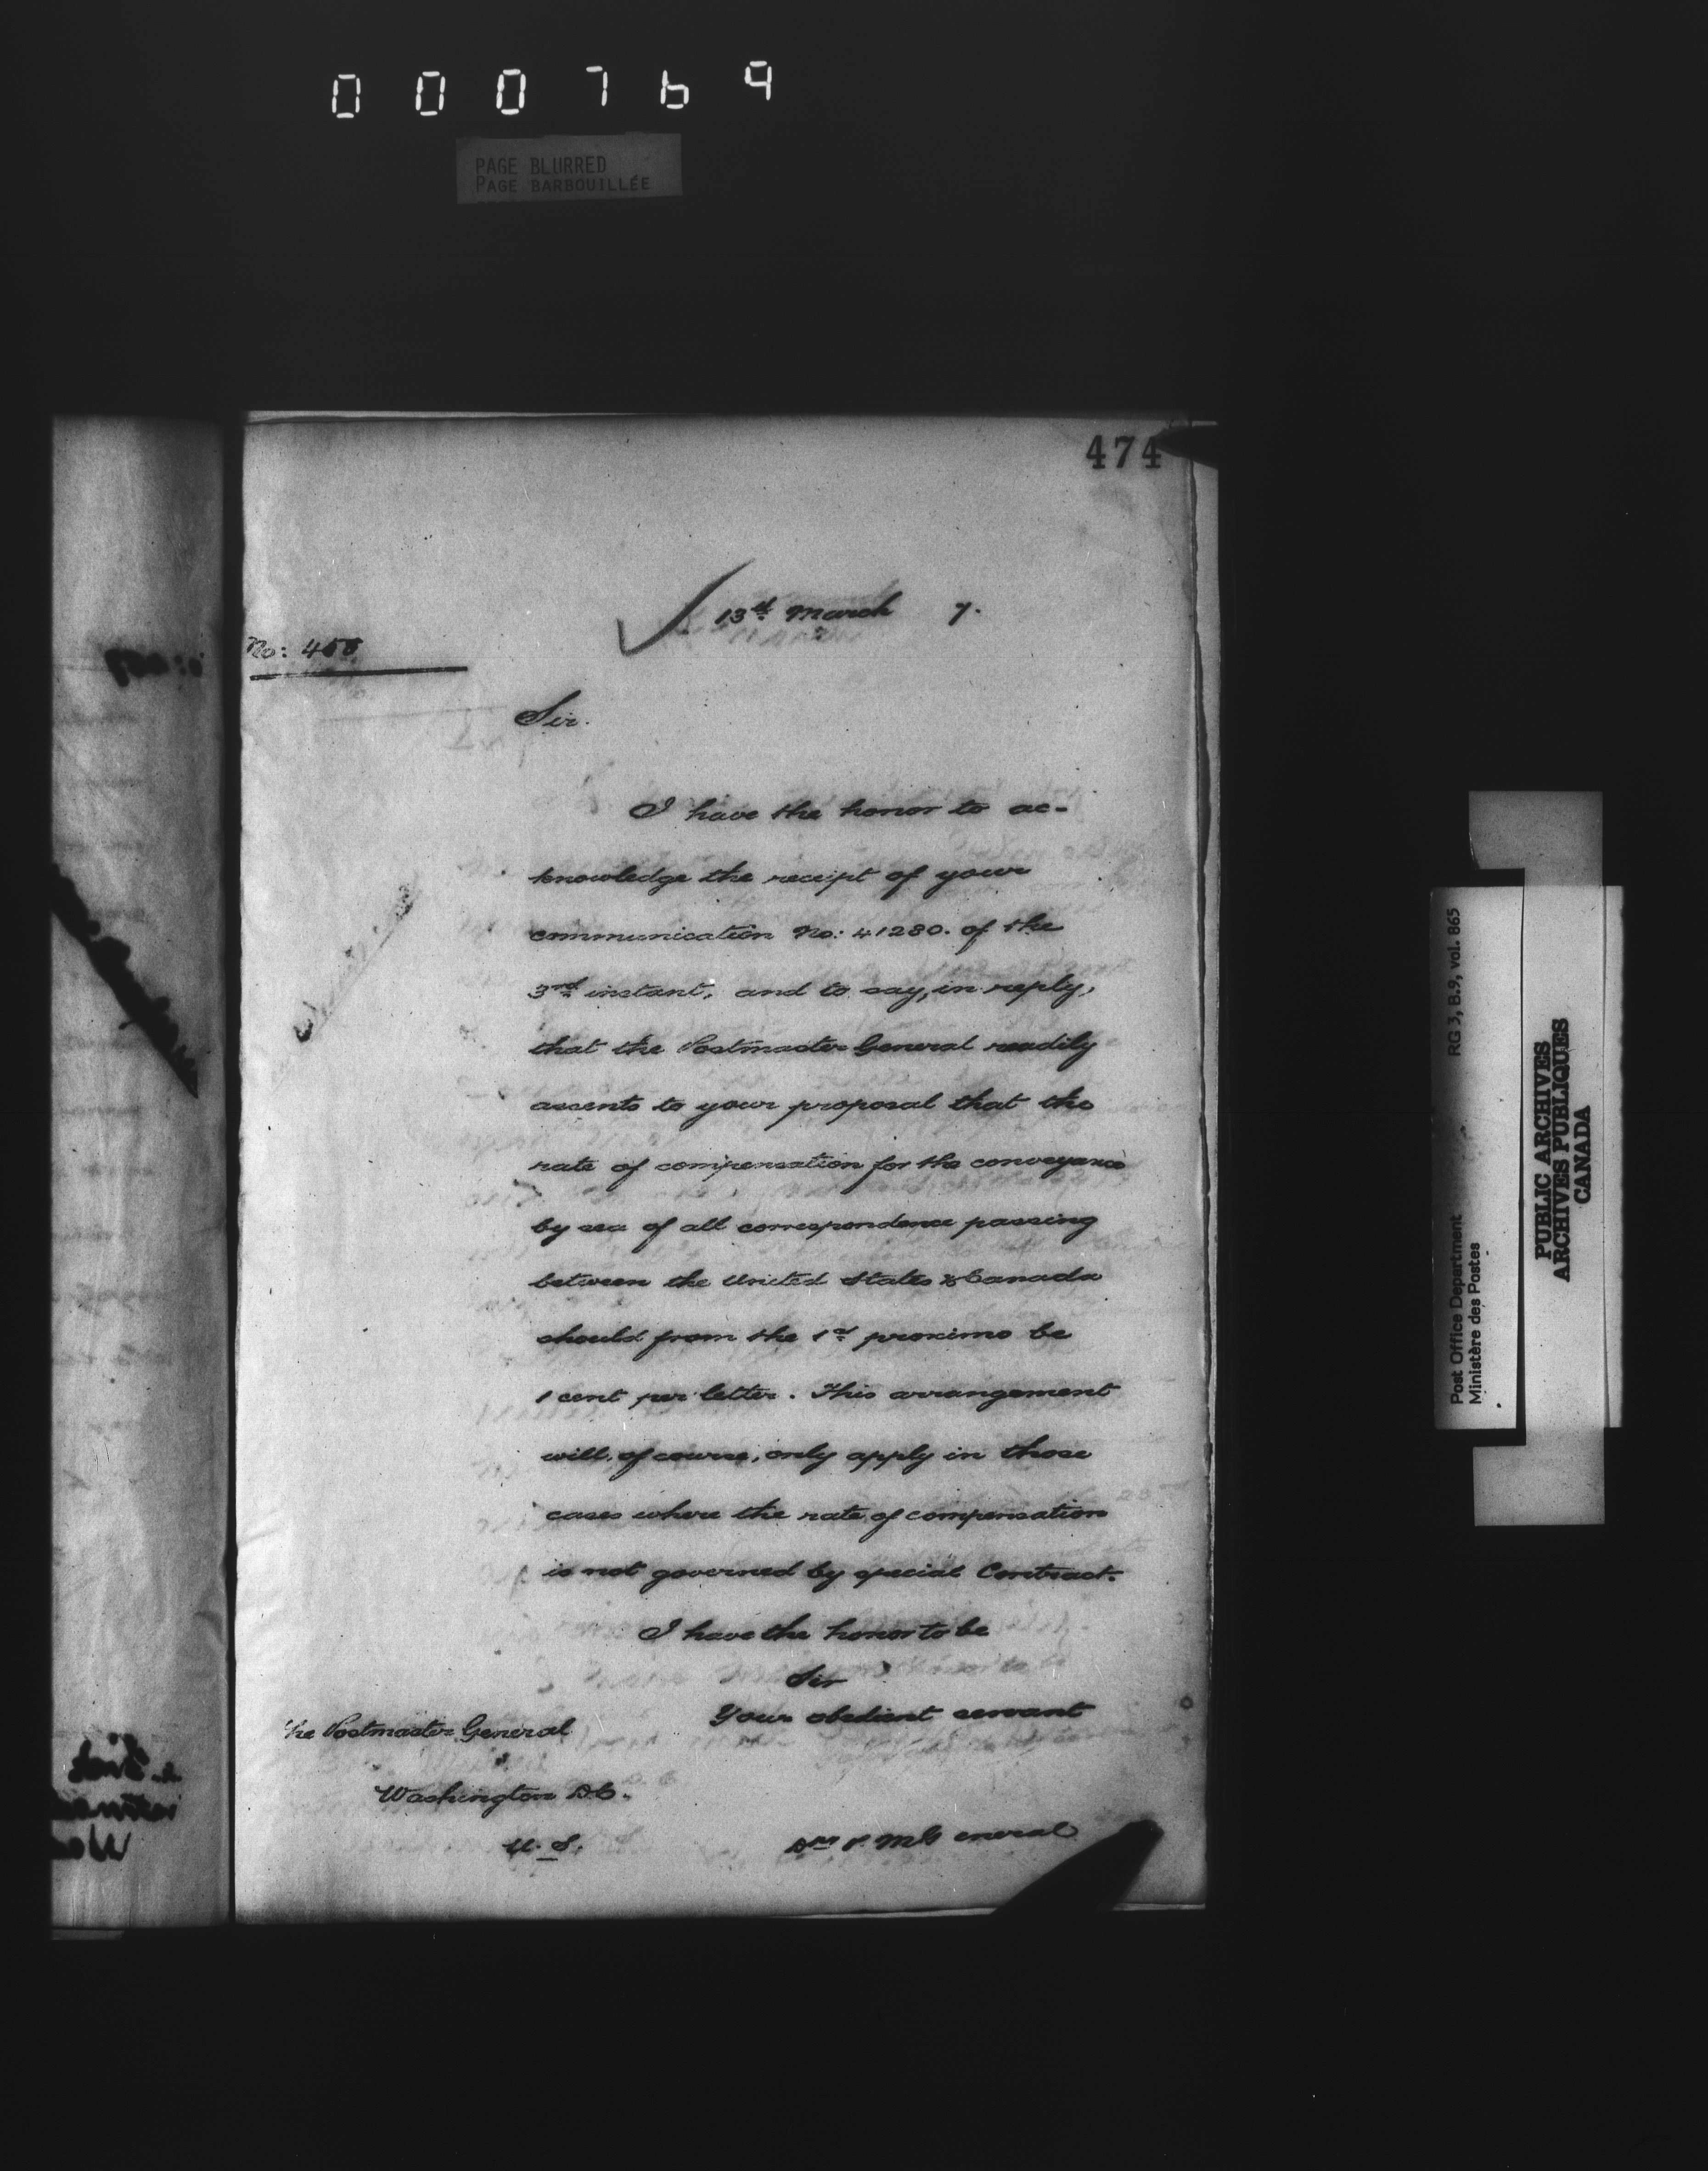 000769
PAGE BLURRED
PAGE BARBOUILLÉE
474
13th March 7.
No: 458
Sir.
I have the honor to ac-
knowledge the receipt of your
communication No: 41280. of the
3rd instant, and to say, in reply,
that the Postmaster General readily
assents to your proposal that the
rate of compensation for the conveyance
by sea of all correspondence passing
between the United States & Canada
should from the 1st proximo be
1 cent per letter. This arrangement
will, of course, only apply in those
cases where the rate of compensation
is not governed by special Contract.
I have the honor to be
Sir
Your obedient servant
The Postmaster General
Washington D.C.
U.S.
P. M G eneral
RG 3, B.9, vol. 865
Post Office Department
Ministère des Postes
PUBLIC ARCHIVES
ARCHIVES PUBLIQUES
CANADA